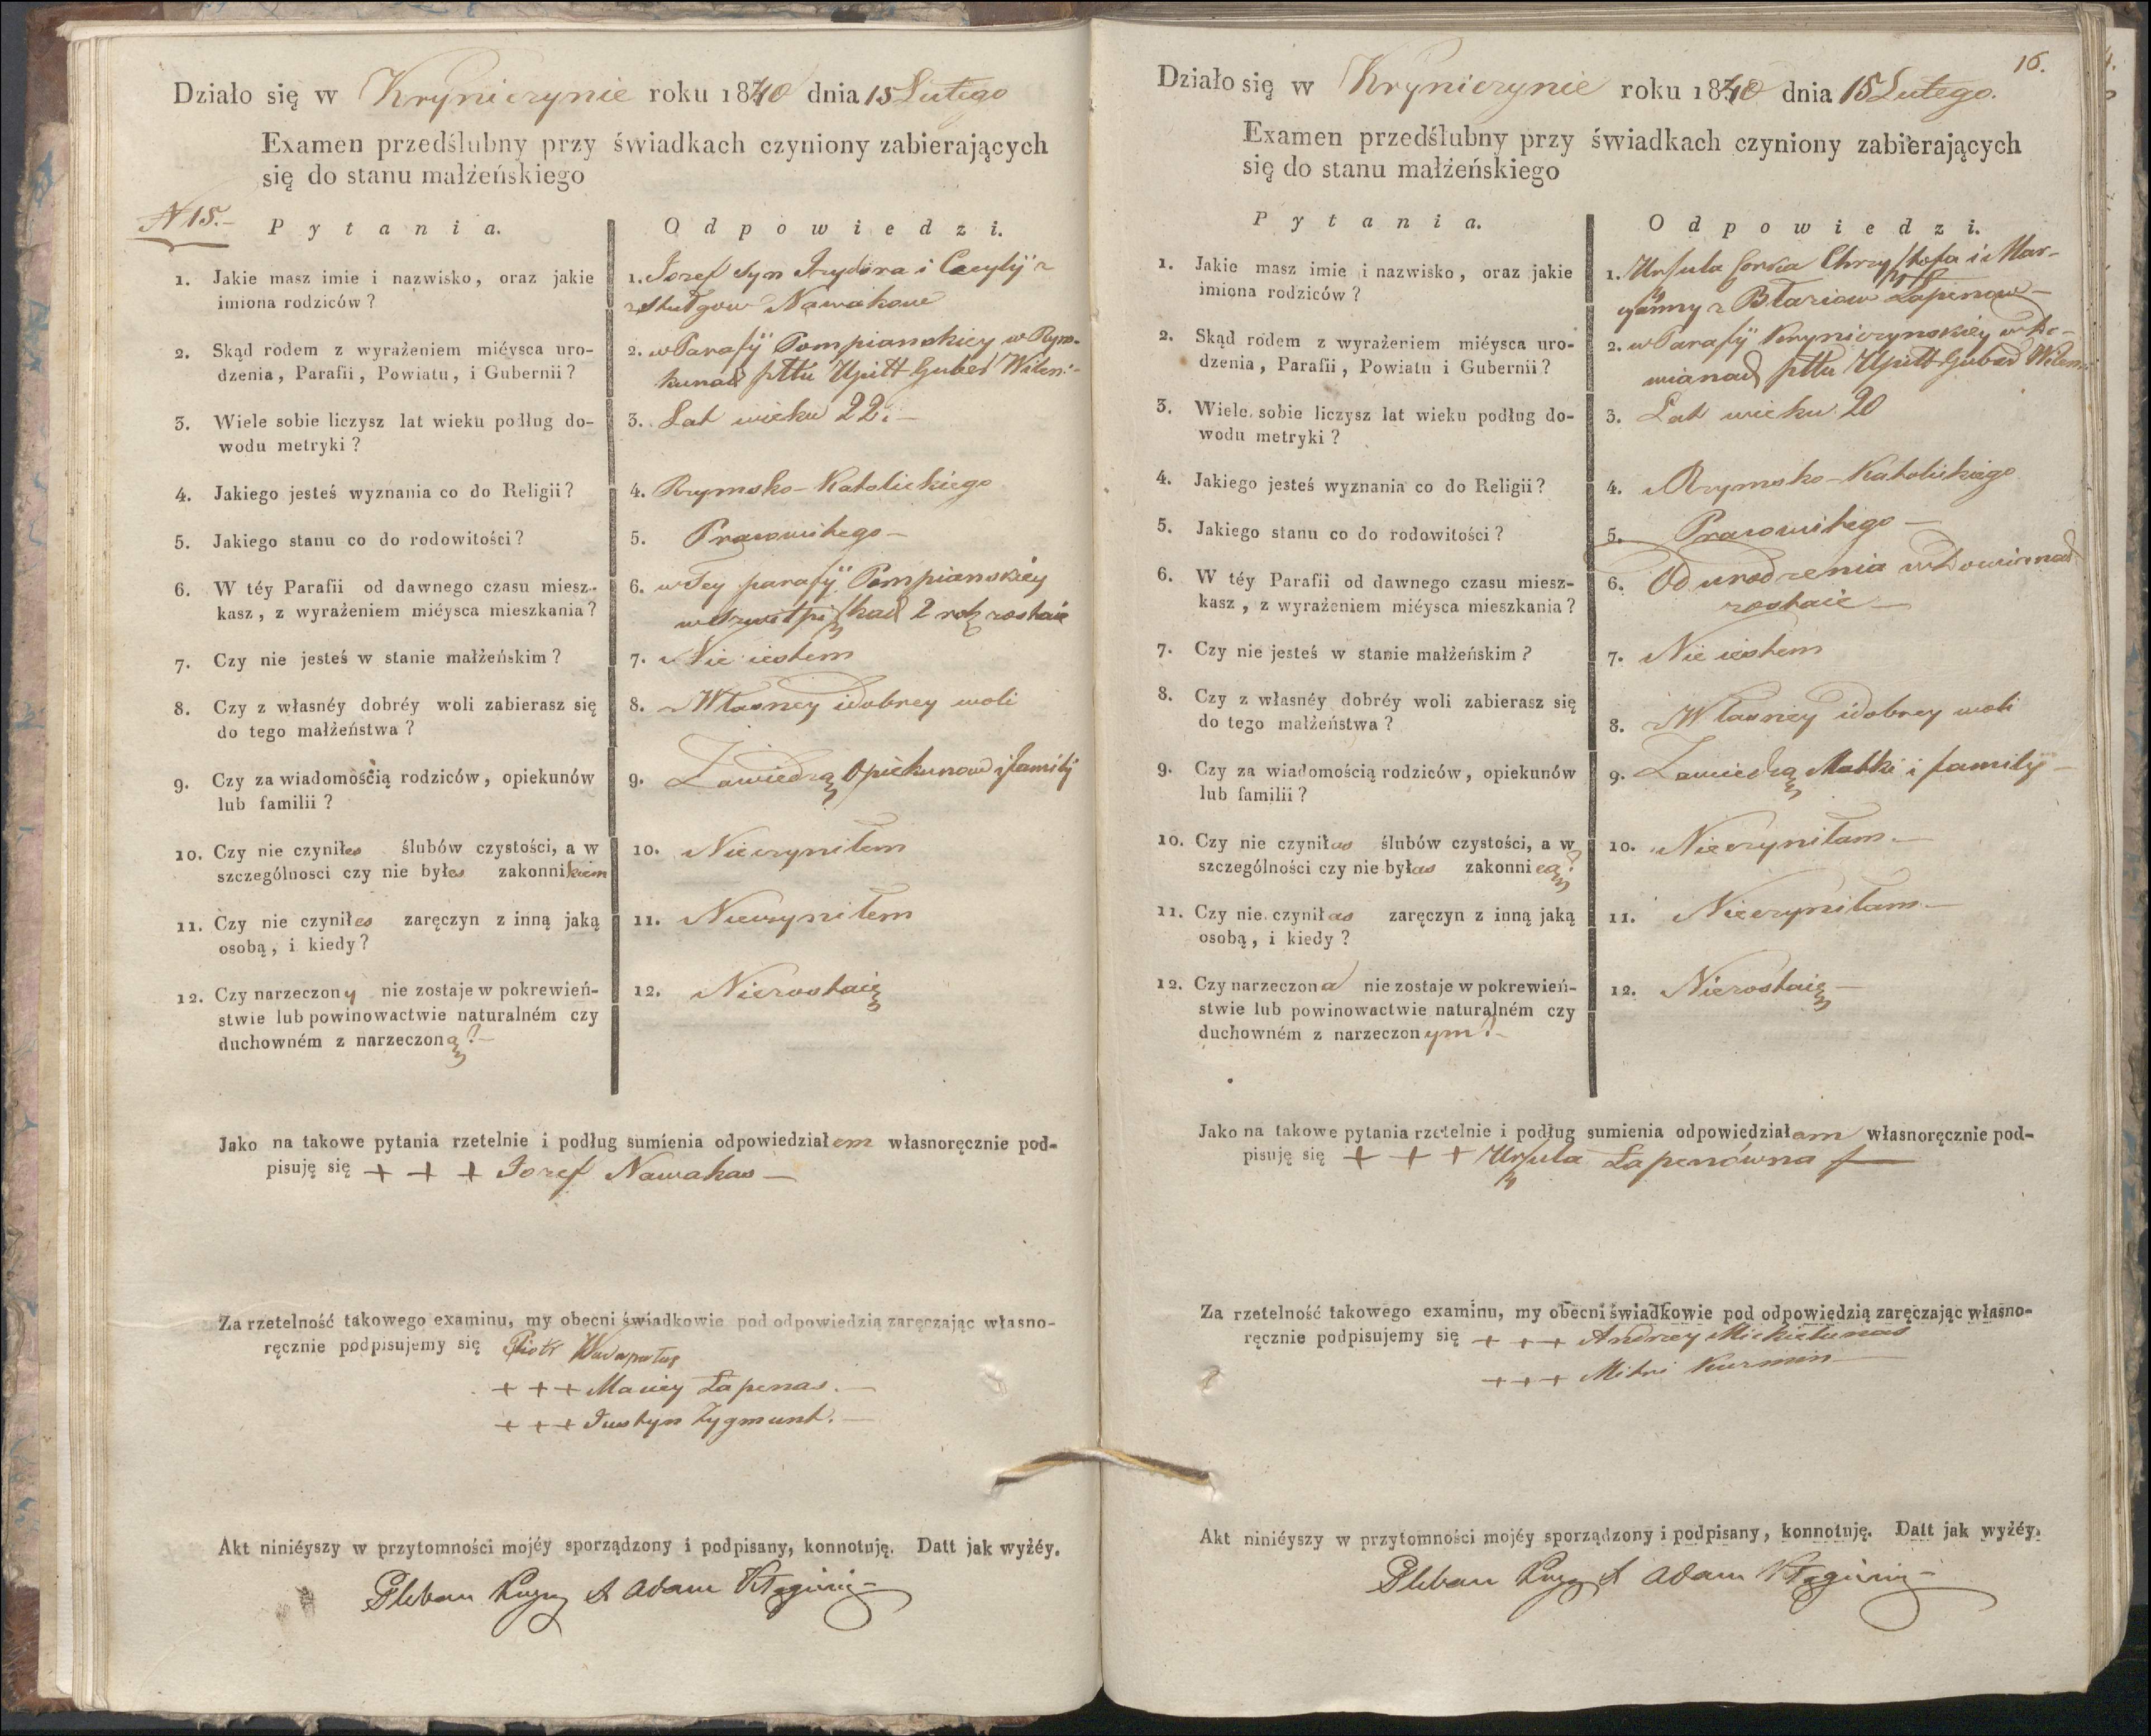 Działo się w Kryniczynie roku 1840 dnia 15 Lutego
Examen przedślubny przy świadkach czyniony zabierających
się do stanu małżeńskiego
N 15.-
Pytania.
Odpowiedzi.
1. Jakie masz imie i nazwisko, oraz jakie
imiona rodziców?
1. Jozef Syn Jzydora i Cecylÿ z
Nawakow
2. Skąd rodem z wyrażeniem miéysca uro-
dzenia, Parafii, Powiatu, i Gubernii?
2. w Parafÿ Pompianskiey w Rym-
kunach pttu Upitt Guber Wilen:-
3. Wiele sobie liczysz lat wieku podług do-
wodu metryki?
3. Lat wieku 22.-
4. Jakiego jesteś wyznania co do Religii?
4. Rzymsko-Katolickiego
5. Jakiego stanu co do rodowitości?
5. Prawowitego-
6. W téy Parafii od dawnego czasu miesz-
kasz, z wyrażeniem miéysca mieszkania?
6. w Tey parafÿ Pompianskiey
2 rok zostaie
7. Czy nie jesteś w stanie małżeńskim?
7. Nie iestem
8. Czy z własnéy dobréy woli zabierasz się
do tego małżeństwa?
8. z Własney i dobrey woli
9. Czy za wiadomością rodziców, opiekunów
lub familii?
9. Zawiedzą Opiekunow i familÿ
10. Czy nie czyniłes ślubów czystości, a w
szczególnosci czy nie byłes zakonnikiem
10. Nieczyniłem
11. Czy nie czyniłes zaręczyn z inną jaką
osobą, i kiedy?
11. Nieczyniłem
12. Czy narzeczony nie zostaje w pokrewień-
stwie lub powinowactwie naturalném czy
duchowném z narzeczoną?-
12. Niezostaię
Jako na takowe pytania rzetelnie i podług sumienia odpowiedziałem własnoręcznie pod-
pisuję się + + + Jozef Nawakas-
Za rzetelność takowego examinu, my obecni świadkowie pod odpowiedzią zaręczając własno-
ręcznie podpisujemy się Piotr
+ + + Maciey Łapenas.-
+ + + Justyn Zygmunt.-
Akt niniéyszy w przytomności mojéy sporządzony i podpisany, konnotuję. Datt jak wyżéy.
Pleban Xiądz Adam
16.
Działo się w Kryniczynie roku 1840 dnia 15 Lutego.
Examen przedślubny przy świadkach czyniony zabierających
się do stanu małżeńskiego
Pytania.
Odpowiedzi.
1. Jakie masz imie i nazwisko, oraz jakie
imiona rodziców?
1. Urszula Corka Chrzysztofa i Mar-
cyanny z Łapenow-
2. Skąd rodem z wyrażeniem miéysca uro-
dzenia, Parafii, Powiatu i Gubernii?
2. w Parafÿ Kryniczynskiey w Do-
wianach pttu Upitt Guber Wilen:
3. Wiele sobie liczysz lat wieku podług do-
wodu metryki?
3. Lat wieku 20
4. Jakiego jesteś wyznania co do Religii?
4. Rzymsko-Katolickiego
5. Jakiego stanu co do rodowitości?
5. Prawowitego-
6. W téy Parafii od dawnego czasu miesz-
kasz, z wyrażeniem miéysca mieszkania?
6. Od urodzenia w Dowianach
zostaie-
7. Czy nie jesteś w stanie małżeńskim?
7. Nie iestem
8. Czy z własnéy dobréy woli zabierasz się
do tego małżeństwa?
8. z Własney i dobrey woli
9. Czy za wiadomością rodziców, opiekunów
lub familii?
9. Zawiedzą Matki i familÿ-
10. Czy nie czyniłas ślubów czystości, a w
szczególności czy nie byłas zakonnicą?
10. Nieczyniłam-
11. Czy nie czyniłas zaręczyn z inną jaką
osobą, i kiedy?
11. Nieczyniłam-
12. Czy narzeczona nie zostaje w pokrewień-
stwie lub powinowactwie naturalném czy
duchowném z narzeczonym?-
12. Niezostaię-
Jako na takowe pytania rzetelnie i podług sumienia odpowiedziałam własnoręcznie pod-
pisuję się + + + Urszula Łapenówna
Za rzetelność takowego examinu, my obecni świadkowie pod odpowiedzią zaręczając własno-
ręcznie podpisujemy się + + + Andrzey Mickielunas
+ + + Kurmin-
Akt niniéyszy w przytomności mojéy sporządzony i podpisany, konnotuję. Datt jak wyżéy.
Pleban Xiądz Adam